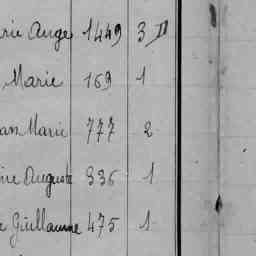 rie Ange 1449 3
Marie 169 1
an Marie 777 2
ine Auguste 336 1
e Guillaume 475 1